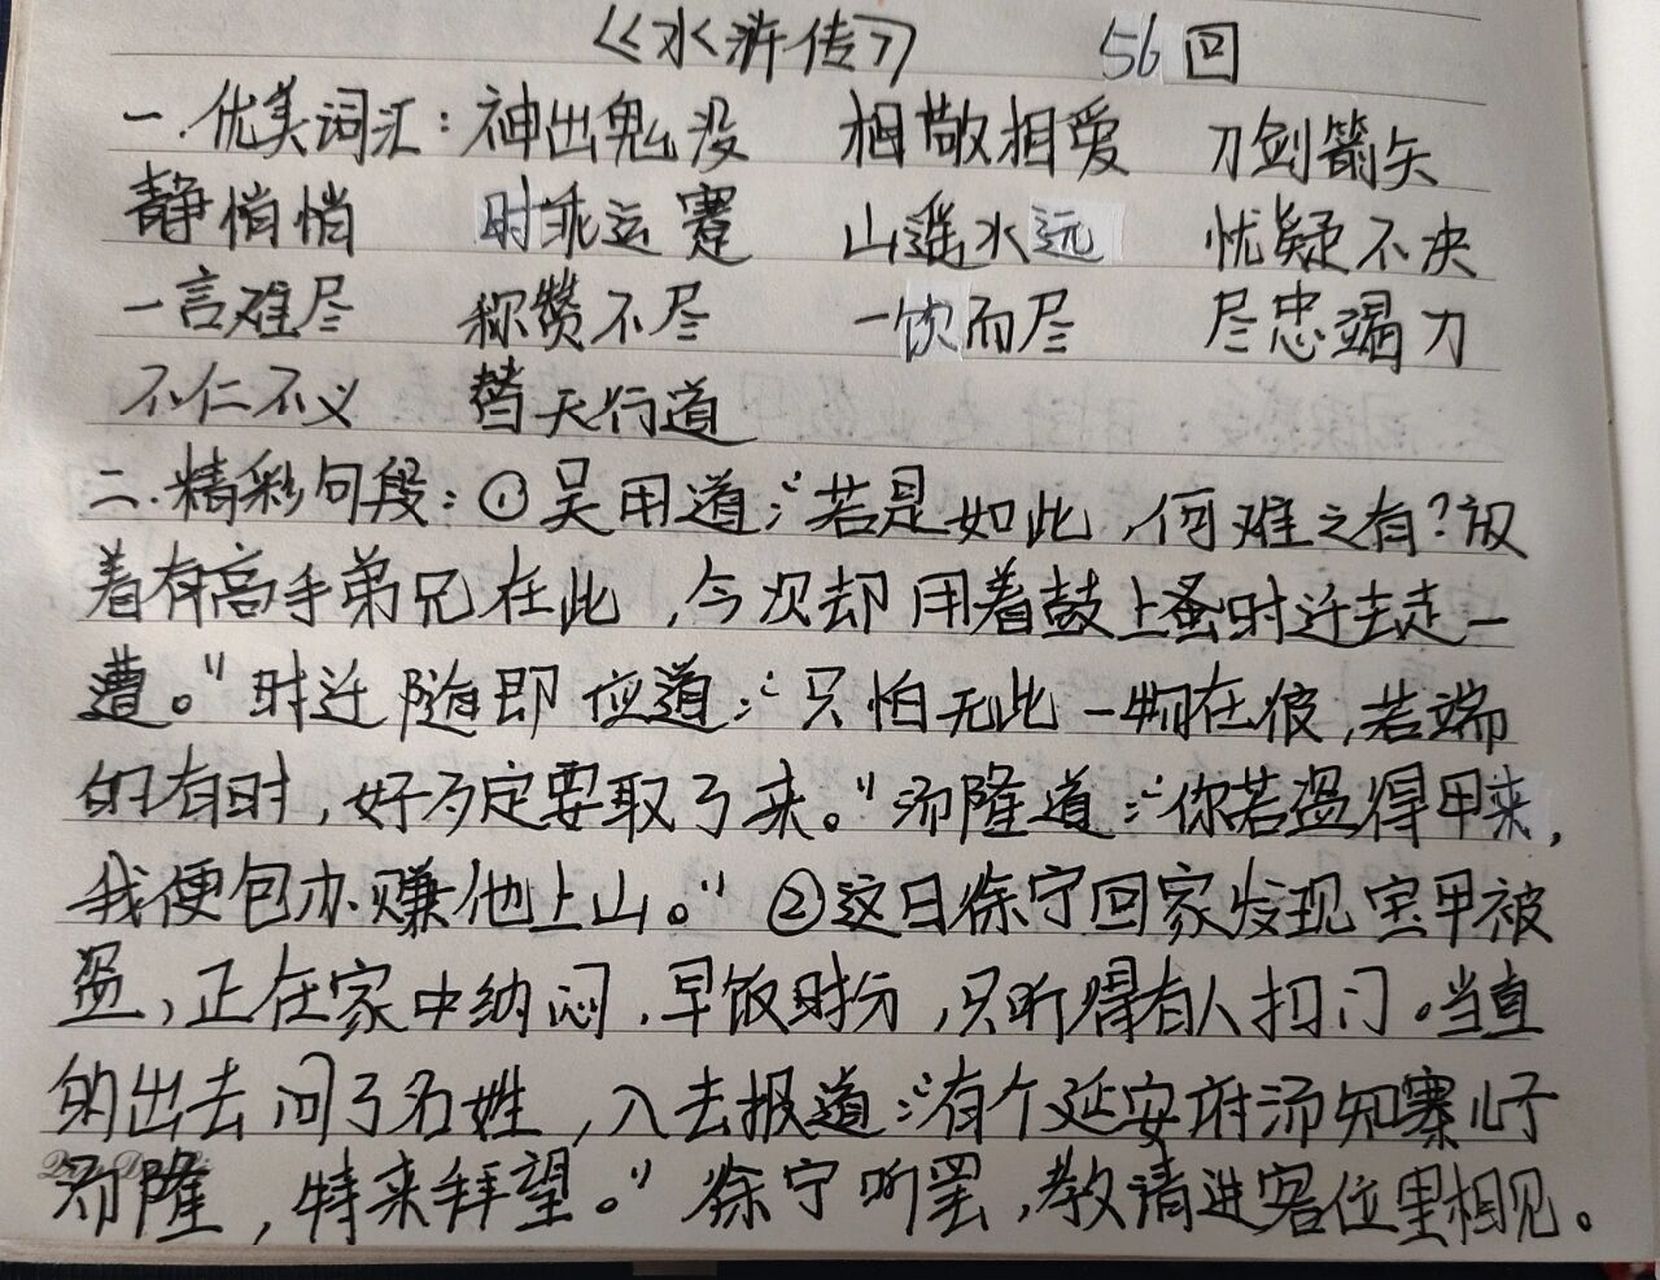 《水浒传》 56回
一.优美词汇:神出鬼没 相敬相爱 刀剑箭矢
静悄悄 时乖运蹇 山遥水远 忧疑不决
一言难尽 称赞不尽 一饮而尽 尽忠竭力
不仁不义 替天行道
二.精彩句段:①吴用道:“若是如此,何难之有?放
着有高手弟兄在此,今次却用着鼓上蚤时迁去走一
遭。”时迁随即应道:“只怕无此一物在彼,若端
的有时,好歹定要取了来。”汤隆道:“你若盗得甲来,
我便包办赚他上山。” ②这日徐宁回家发现宝甲被
盗,正在家中纳闷,早饭时分,只听得有人扣门。当直
的出去问了名姓,入去报道:“有个延安府汤知寨儿子
汤隆,特来拜望。”徐宁听罢,教请进客位里相见。